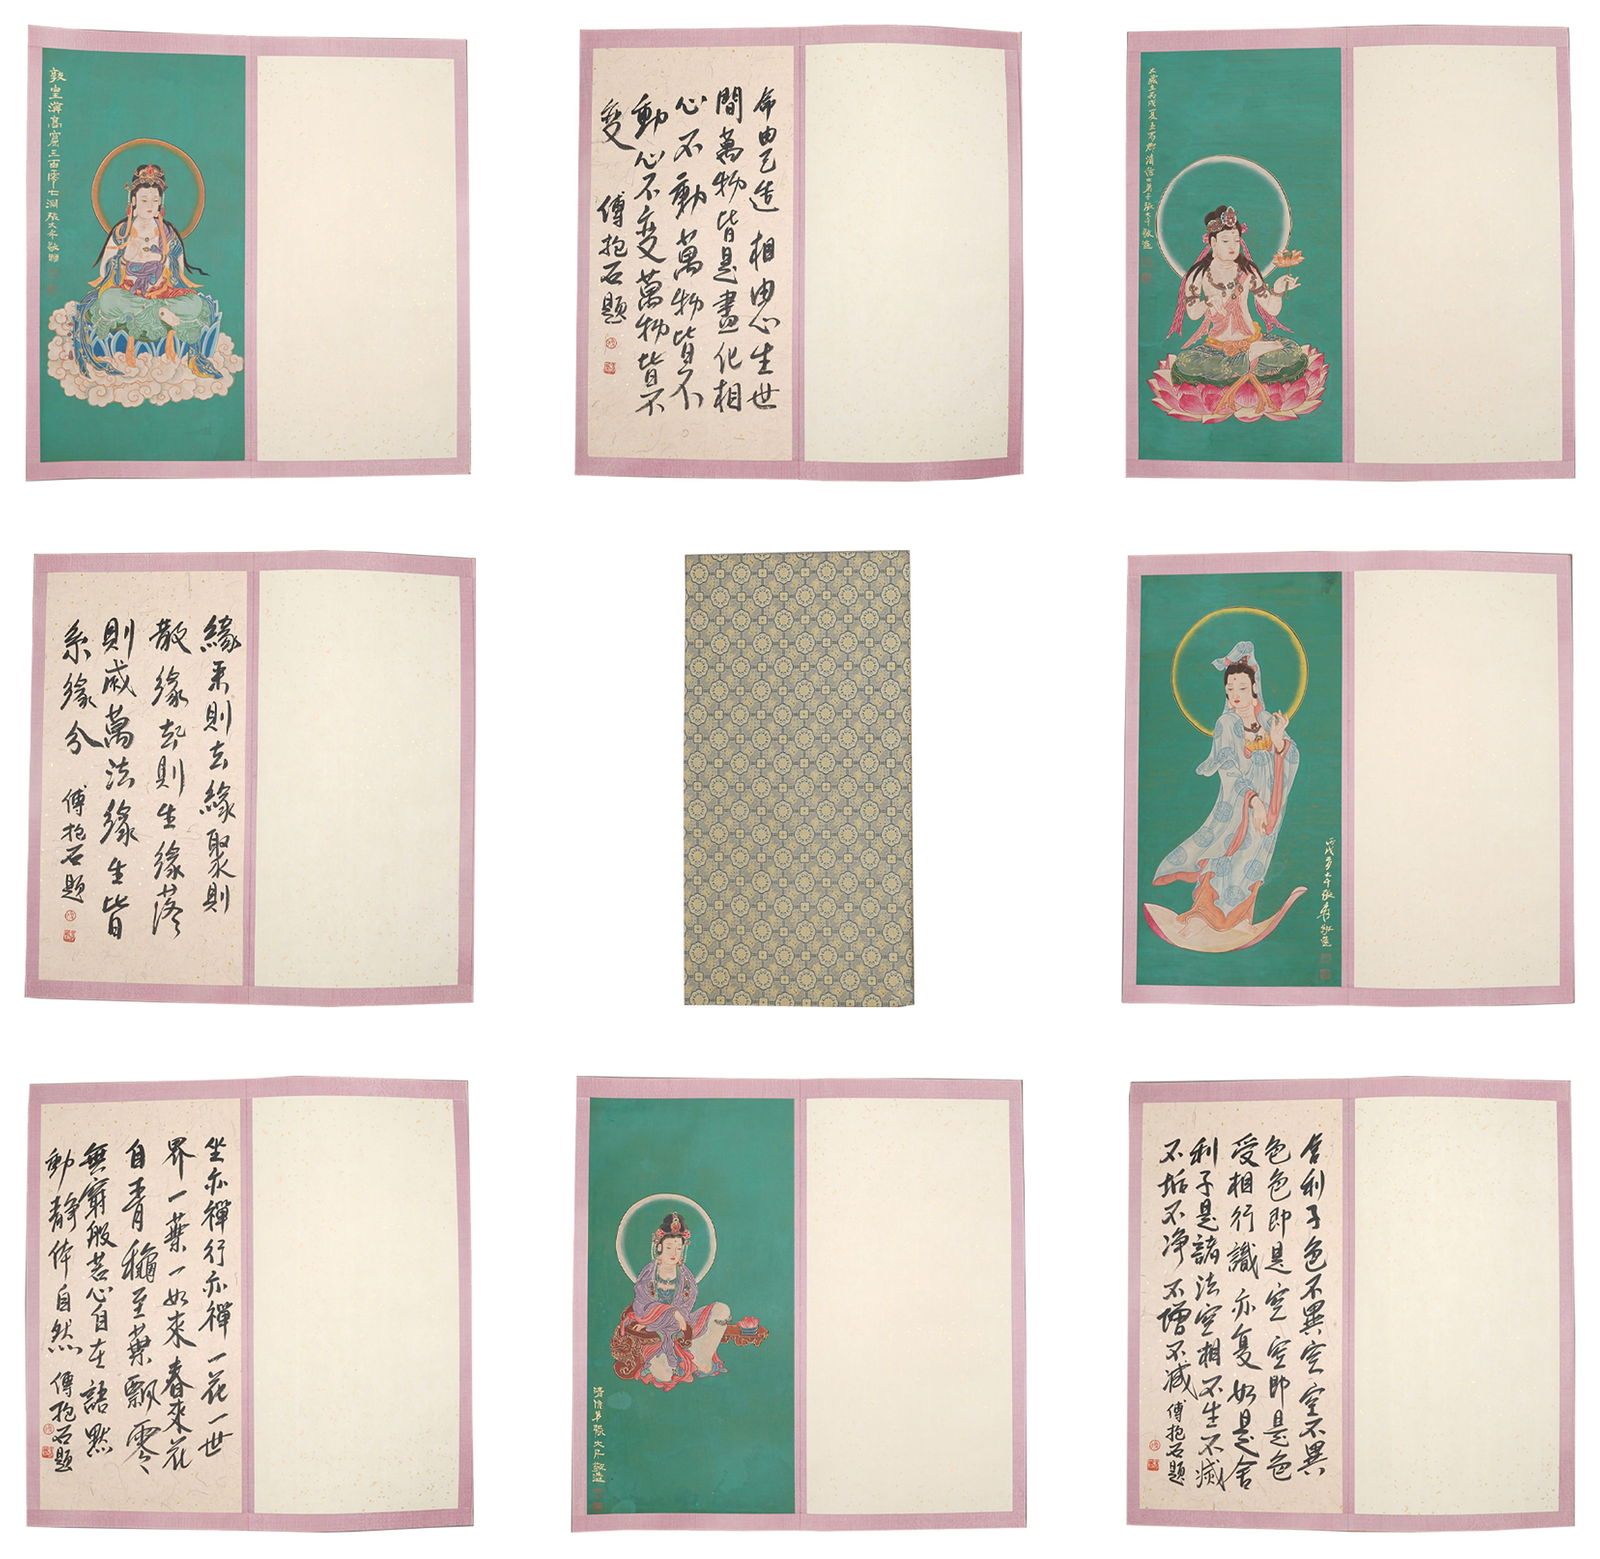 敦皇漠高窟三百零七洞張大千敬寫
命由己造相由心生世
間萬物皆是畫化相
心不動萬物皆不
動心不变萬物皆不
变
傅抱石題
大千張
緣来則去緣聚則
散緣起則生緣落
則滅萬法緣生皆
系緣分
傅抱石題
丙戌
大千張爰敬造
坐亦禪行亦禪一花一世
界一葉一如來春來花
自青秋至葉飘零
無窮般若心自在語默
動静体自然
傅抱石題
清信男張大千敬造
舍利子色不異空空不異
色色即是空空即是色
受相行識亦复如是舍
利子是諸法空相不生不滅
不垢不净不增不减
傅抱石題